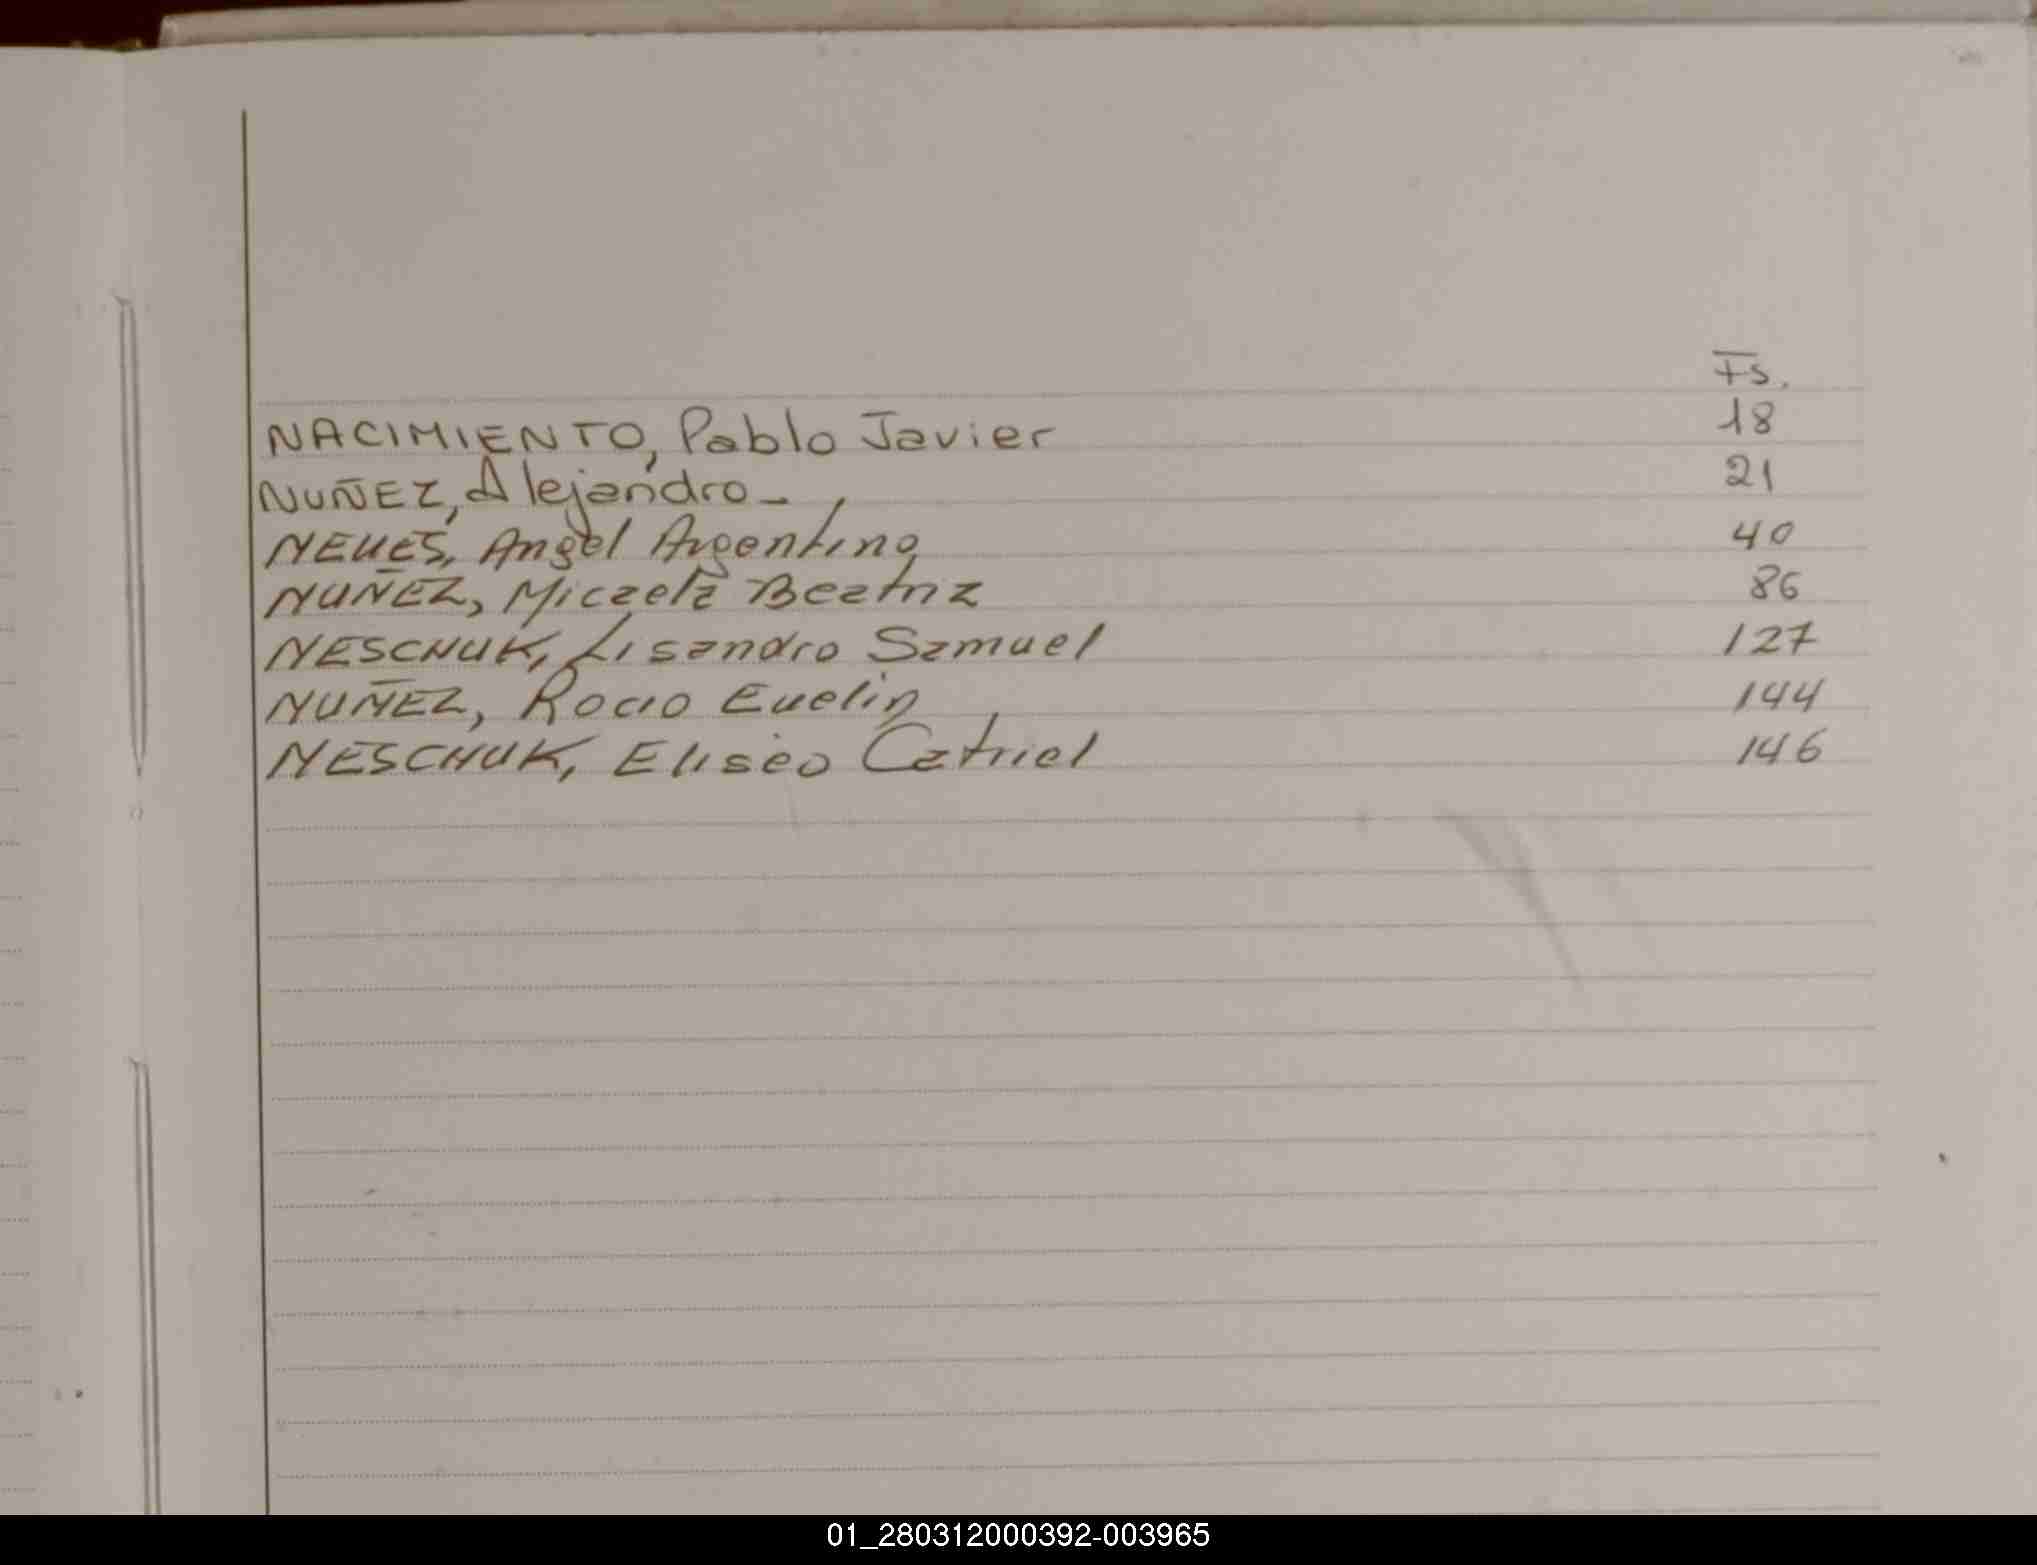 Fs.
NACIMIENTO, Pablo Javier 18
NUÑEZ, Alejandro - 21
NEUES, Angel Argentino 40
NUÑEZ, Micaela Beatriz 86
NESCHUK, Lisandro Samuel 127
NUÑEZ, Rocio Evelin 144
NESCHUK, Eliseo Catriel 146
01_280312000392-003965